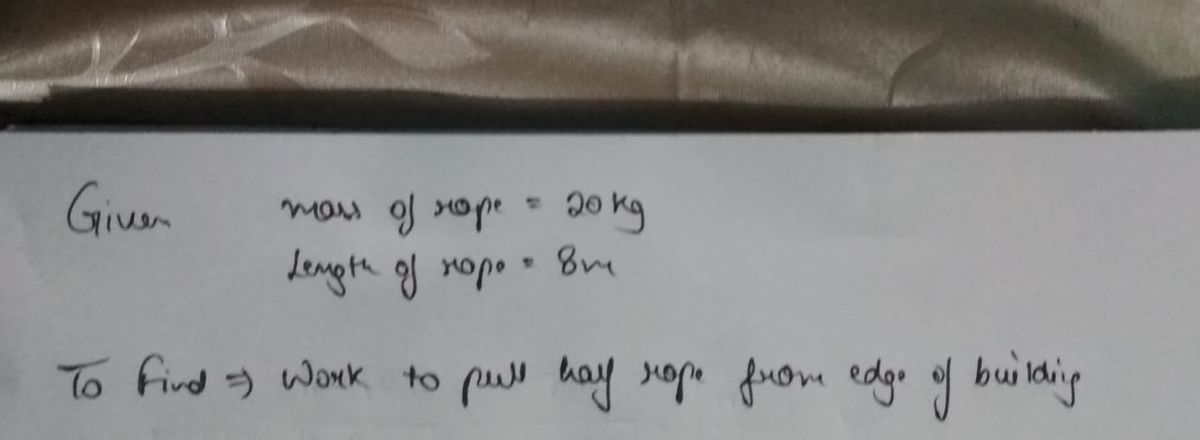 Given mass of rope = 20 kg
Length of rope = 8m
To Find ⇒ Work to pull half rope from edge of building